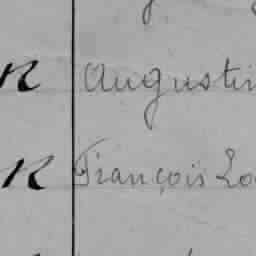 R Augusti
R François Lo